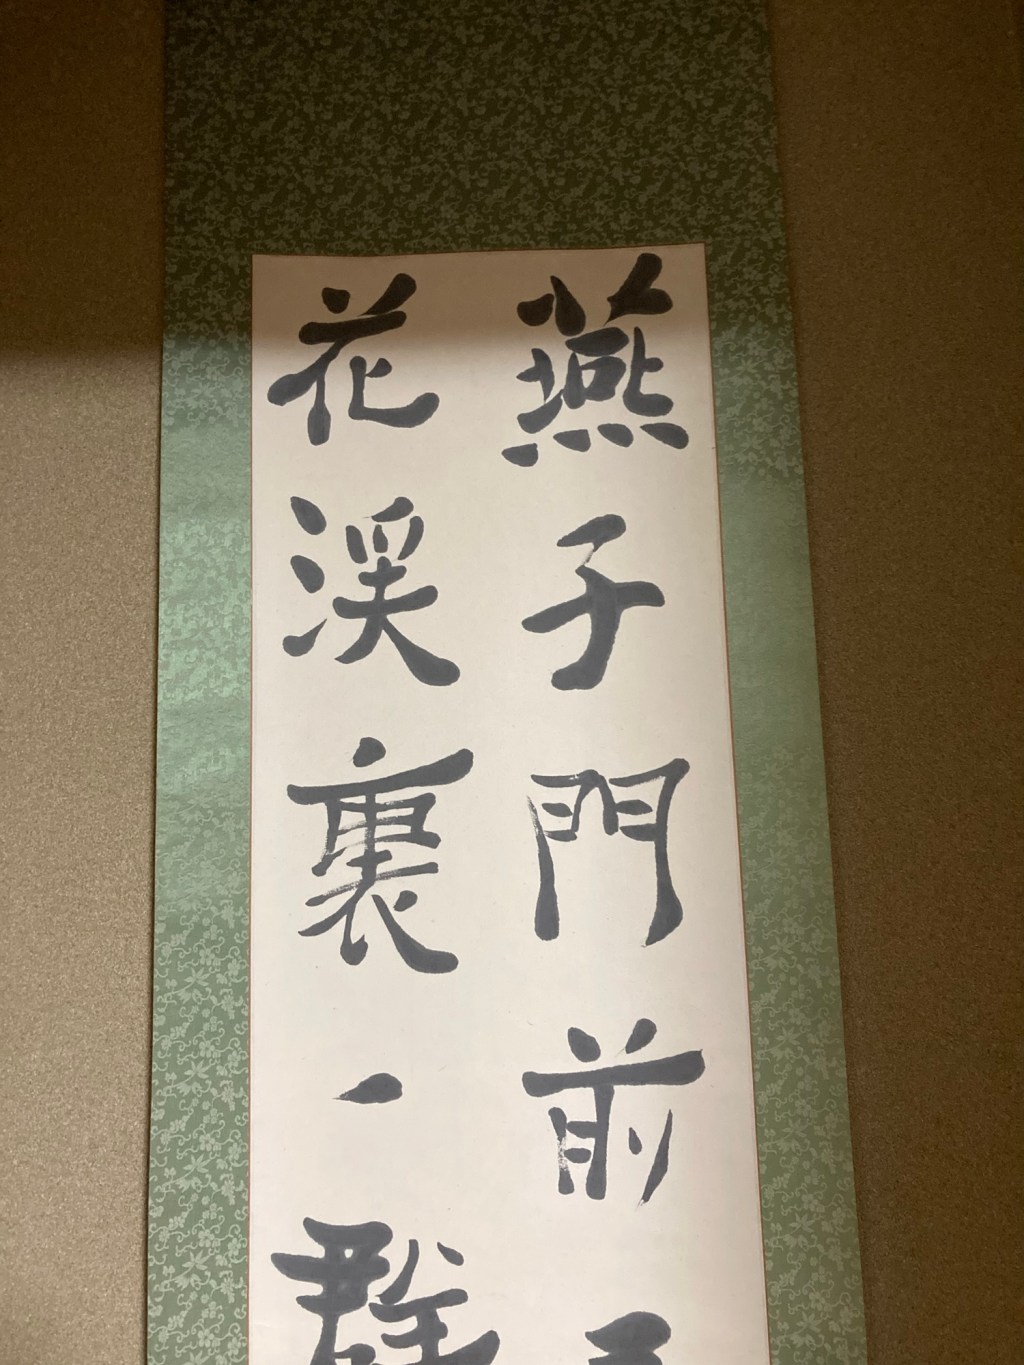 燕子門前
花渓裏一群